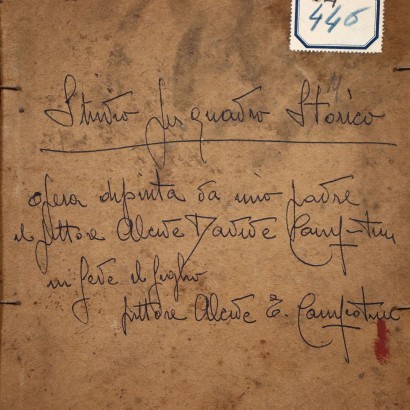 446
Studio per quadro Storico
opera dipinta da mio padre
il pittore Alcide Davide Campestrini
in fede il figlio
pittore Alcide E. Campestrini